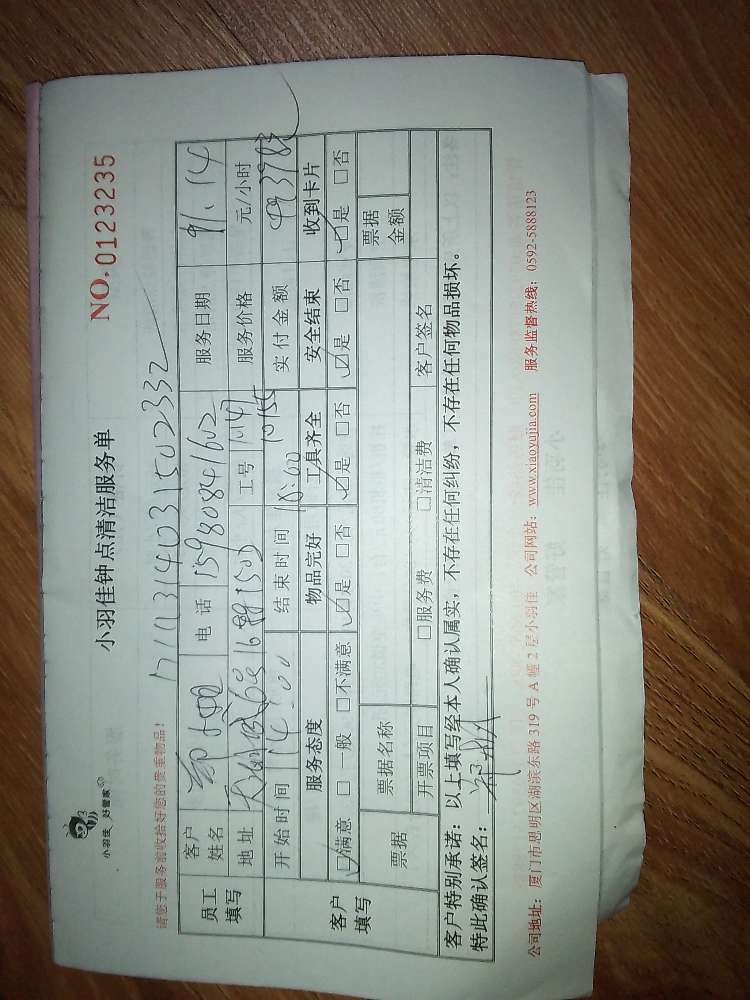 小羽佳 好管家
小羽佳钟点清洁服务单
NO.0123235
请您于服务前收拾好您的贵重物品!
员工填写
客户姓名
电话 15980841602
服务日期
地址
工号
服务价格 元/小时
开始时间 14:00
结束时间 18:00
实付金额
客户填写
服务态度 物品完好 工具齐全 安全结束 收到卡片
☑满意 □一般 □不满意 ☑是 □否 ☑是 □否 ☑是 □否 ☑是 □否
票据 票据名称 票据金额
开票项目 □服务费 □清洁费 客户签名
客户特别承诺:以上填写经本人确认属实,不存在任何纠纷,不存在任何物品损坏。
特此确认签名:
公司地址:厦门市思明区湖滨东路 319 号 A 幢 2 层小羽佳 公司网站:www.xiaoyujia.com 服务监督热线:0592-5888123